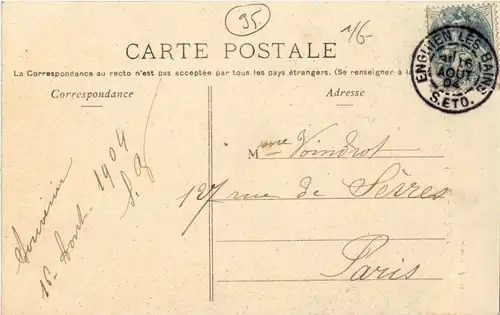 95
CARTE POSTALE
La Correspondance au recto n'est pas acceptée par tous les pays étrangers. (Se renseigner à la
Correspondance
Adresse
ENGHIEN LES BAINS
16
AOUT
04
S. ET O.
Souvenir
16 Aout 1904
Mme Voindrot
127 rue de Sèvres
Paris